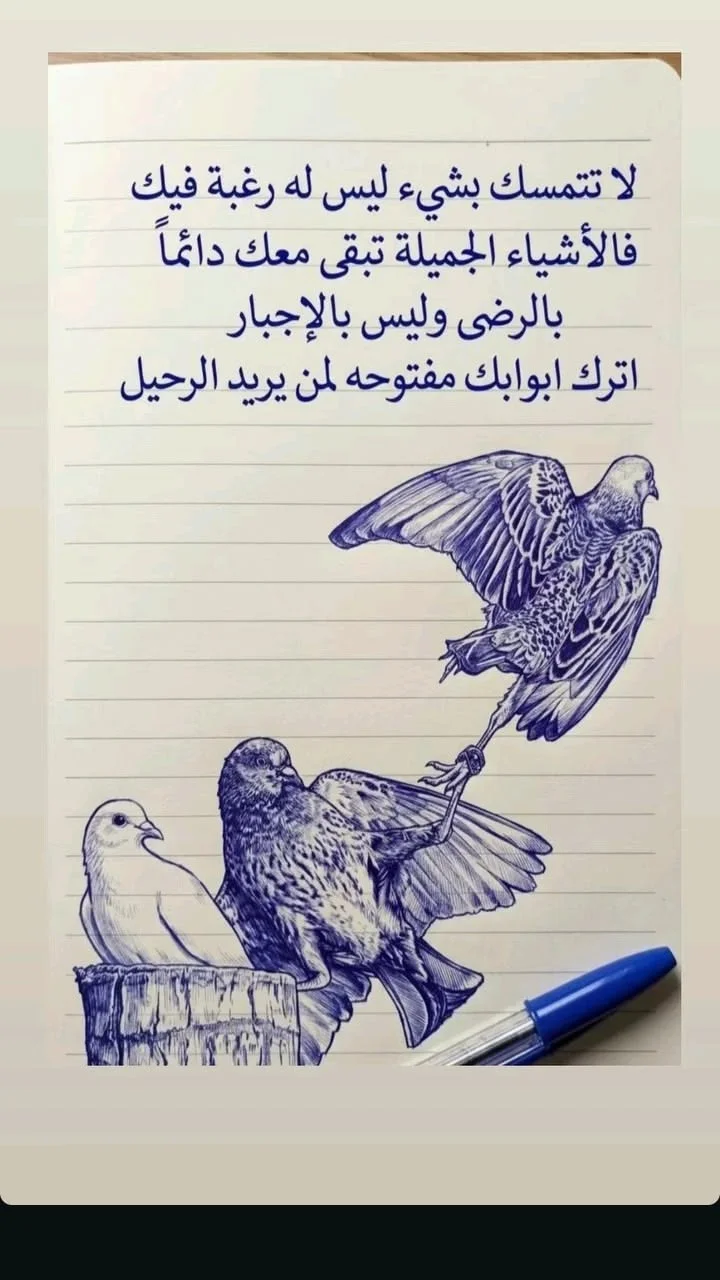 لا تتمسك بشيء ليس له رغبة فيك
فالأشياء الجميلة تبقى معك دائماً
بالرضى وليس بالإجبار
اترك ابوابك مفتوحه لمن يريد الرحيل